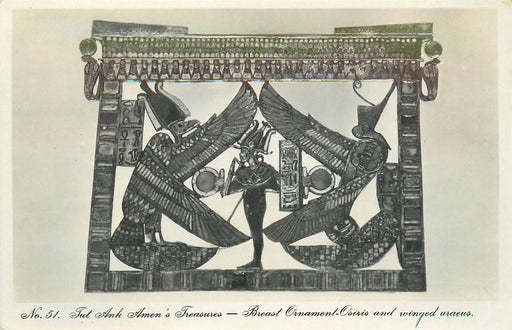 No. 51. Tut Ankh Amen's Treasures — Breast Ornament-Osiris and winged uraeus.